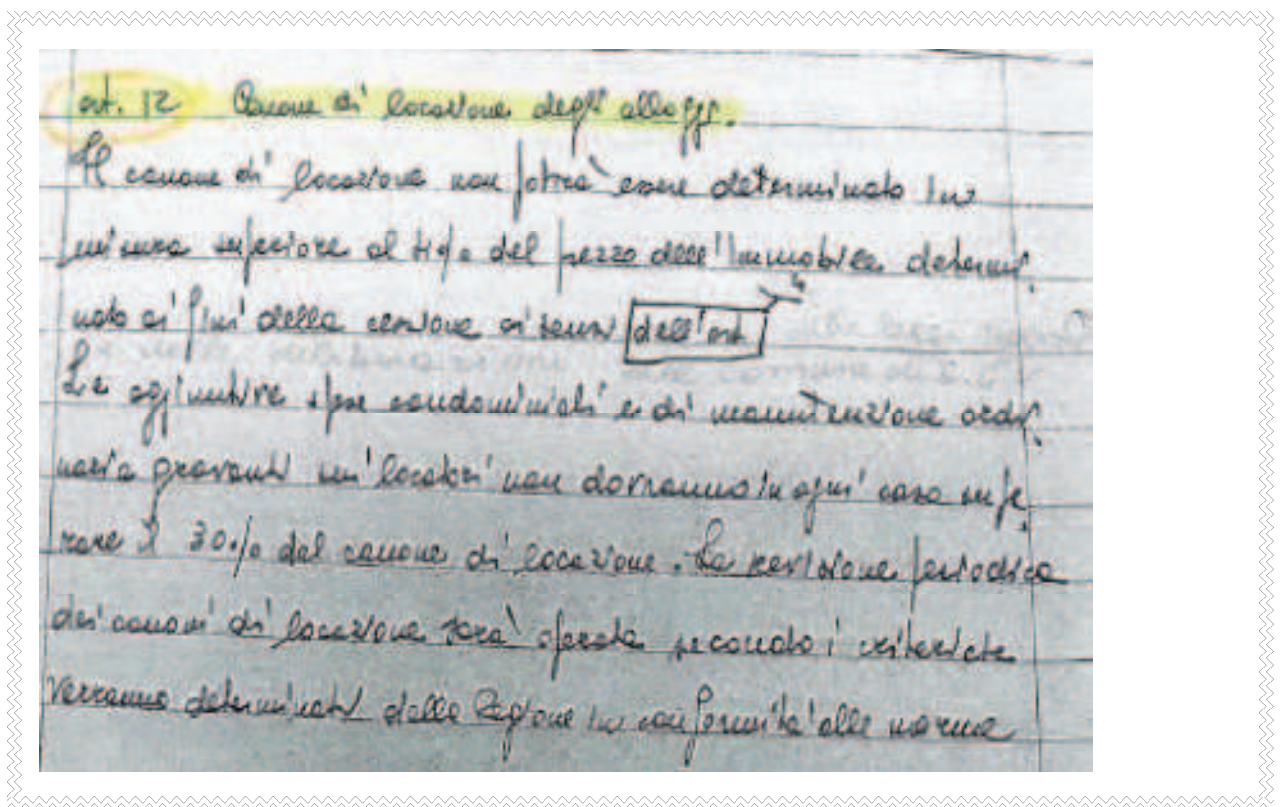 art. 12 Canone di locazione degli alloggi.
Il canone di locazione non potrà essere determinato in
misura superiore al del prezzo dell'immobile determi
nato ai fini della cessione ai sensi dell'art.
Le aggiuntive spese condominiali e di manutenzione ordi
naria gravanti sui locatori non dovranno in ogni caso supe
rare il 30% del canone di locazione. La revisione periodica
dei canoni di locazione sarà operata secondo i criteri che
verranno determinati dalla Regione in conformità alle norme